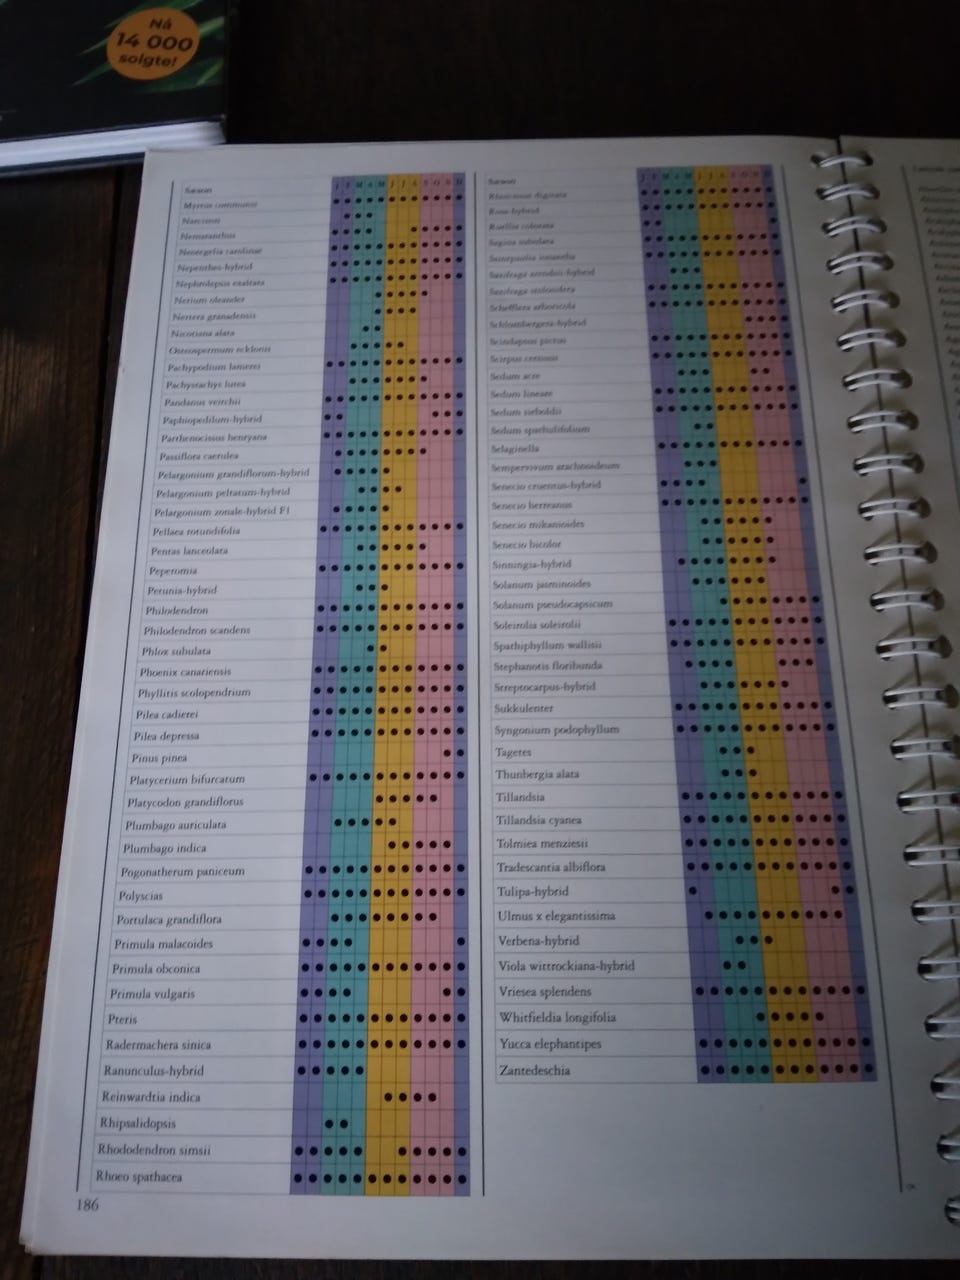 Nå
14 000
solgte!
Sæson
J F M A M J J A S O N D
Myrtus communis
Narcissus
Nematanthus
Neoregelia carolinae
Nepenthes-hybrid
Nephrolepis exaltata
Nerium oleander
Nertera granadensis
Nicotiana alata
Osteospermum ecklonis
Pachypodium lamerei
Pachystachys lutea
Pandanus veitchii
Paphiopedilum-hybrid
Parthenocissus henryana
Passiflora caerulea
Pelargonium grandiflorum-hybrid
Pelargonium peltatum-hybrid
Pelargonium zonale-hybrid F1
Pellaea rotundifolia
Pentas lanceolata
Peperomia
Petunia-hybrid
Philodendron
Philodendron scandens
Phlox subulata
Phoenix canariensis
Phyllitis scolopendrium
Pilea cadierei
Pilea depressa
Pinus pinea
Platycerium bifurcatum
Platycodon grandiflorus
Plumbago auriculata
Plumbago indica
Pogonatherum paniceum
Polyscias
Portulaca grandiflora
Primula malacoides
Primula obconica
Primula vulgaris
Pteris
Radermachera sinica
Ranunculus-hybrid
Reinwardtia indica
Rhipsalidopsis
Rhododendron simsii
Rhoeo spathacea
186
Sæson
J F M A M J J A S O N D
Rhoicissus digitata
Rosa-hybrid
Ruellia colorata
Sagina subulata
Saintpaulia ionantha
Saxifraga arendsii-hybrid
Saxifraga stolonifera
Schefflera arboricola
Schlumbergera-hybrid
Scindapsus pictus
Scirpus cernuus
Sedum acre
Sedum lineare
Sedum sieboldii
Sedum spathulifolium
Selaginella
Sempervivum arachnoideum
Senecio cruentus-hybrid
Senecio herreanus
Senecio mikanioides
Senecio bicolor
Sinningia-hybrid
Solanum jasminoides
Solanum pseudocapsicum
Soleirolia soleirolii
Spathiphyllum wallisii
Stephanotis floribunda
Streptocarpus-hybrid
Sukkulenter
Syngonium podophyllum
Tagetes
Thunbergia alata
Tillandsia
Tillandsia cyanea
Tolmiea menziesii
Tradescantia albiflora
Tulipa-hybrid
Ulmus x elegantissima
Verbena-hybrid
Viola wittrockiana-hybrid
Vriesea splendens
Whitfieldia longifolia
Yucca elephantipes
Zantedeschia